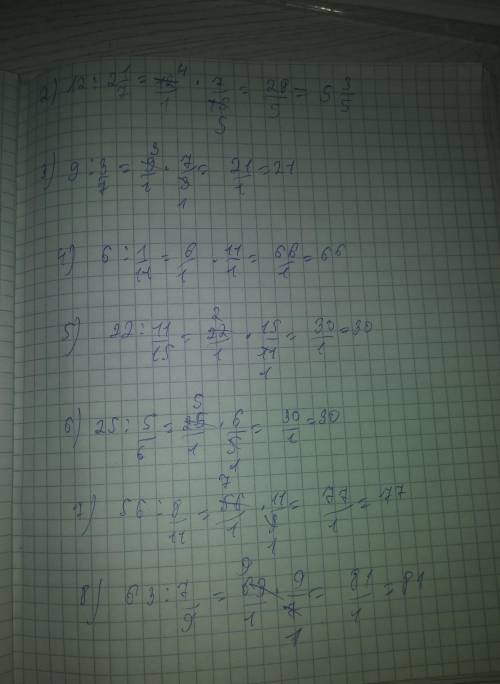 2) 12 : 2 1/7 = 12/1 · 7/15 = 28/5 = 5 3/5
3) 9 : 3/7 = 9/1 · 7/3 = 21/1 = 21
4) 6 : 1/11 = 6/1 · 11/1 = 66/1 = 66
5) 22 : 11/15 = 22/1 · 15/11 = 30/1 = 30
6) 25 : 5/6 = 25/1 · 6/5 = 30/1 = 30
7) 56 : 8/11 = 56/1 · 11/8 = 77/1 = 77
8) 63 : 7/9 = 63/1 · 9/7 = 81/1 = 81